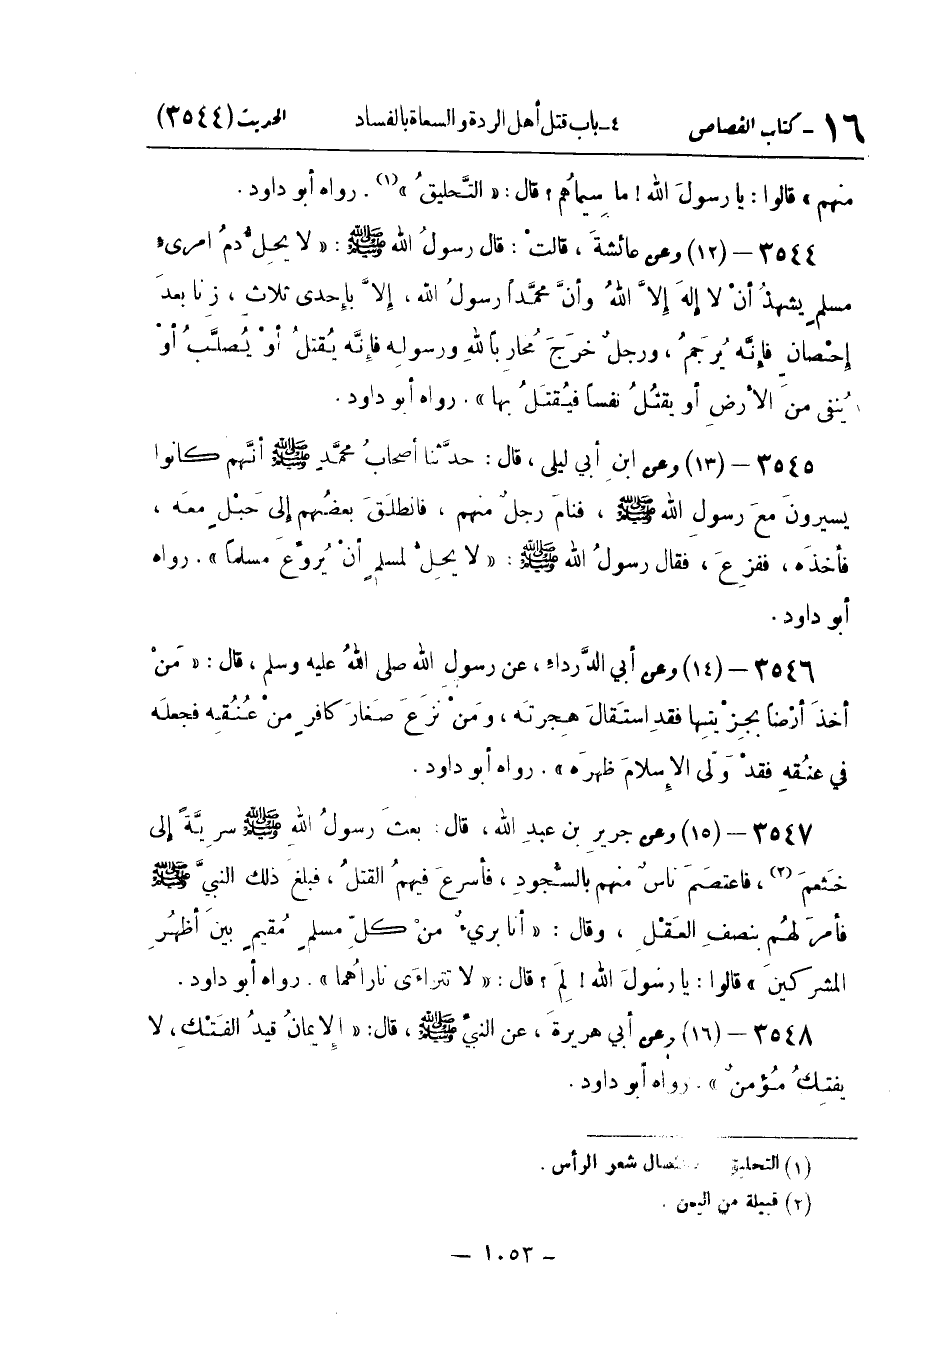 ١٦ - كتاب القصاص ٤ - باب قتل أهل الردة والسعاة بالفساد الحديث (٣٥٤٤)
منهم » قالوا : يا رسولَ الله ! ما سِيماهُم ؟ قال : « التَّحليقُ »(١) . رواه أبو داود .
٣٥٤٤ - (١٢) وعن عائشةَ ، قالتْ : قال رسولُ الله ﷺ : « لا يحلُّ دمُ امرىءٍ
مسلمٍ يشهدُ أنْ لا إلهَ إلاَّ اللهُ وأنَّ محمَّداً رسولُ الله ، إلاَّ بإحدى ثلاثٍ ، زنا بعدَ
إحْصانٍ فإنَّه يُرجَمُ ، ورجلٌ خرَجَ مُحارباً للهِ ورسولِه فإنَّه يُقتلُ أوْ يُصلَّبُ أوْ
يُنفى منَ الأرضِ أو يقتُلُ نفساً فيُقتَلُ بها » . رواه أبو داود .
٣٥٤٥ - (١٣) وعن ابنِ أبي ليلى ، قال : حدَّثنا أصحابُ محمَّدٍ ﷺ أنَّهم كانوا
يسيرونَ معَ رسولِ الله ﷺ ، فنامَ رجلٌ منهم ، فانطلَقَ بعضُهم إلى حَبْلٍ معَه ،
فأخذَه ، ففزِعَ ، فقال رسولُ الله ﷺ : « لا يحلُّ لمسلمٍ أنْ يُروِّعَ مسلماً » . رواه
أبو داود .
٣٥٤٦ - (١٤) وعن أبي الدَّرداءِ ، عن رسولِ الله صلى اللهُ عليه وسلم ، قال : « مَنْ
أخذَ أرْضاً بجِزْيتِها فقدِ استَقالَ هِجرتَه ، ومَنْ نزَعَ صَغارَ كافرٍ منْ عُنُقِه فجعلَه
في عنُقِه فقدْ وَلَّى الإسلامَ ظهرَه » . رواه أبو داود .
٣٥٤٧ - (١٥) وعن جريرِ بنِ عبدِ الله ، قال : بعثَ رسولُ اللهِ ﷺ سريَّةً إلى
خَثْعَمَ (٢) ، فاعتصَمَ ناسٌ منهم بالسُّجودِ ، فأسرعَ فيهمُ القتلُ ، فبلغَ ذلك النبيَّ ﷺ
فأمرَ لهُم بنصفِ العَقْلِ ، وقال : « أنا بريءٌ منْ كلِّ مسلمٍ مُقيمٍ بينَ أظهُرِ
المشركينَ » قالوا : يا رسُولَ الله ! لِمَ ؟ قال : « لا تتراءَى ناراهُما » . رواه أبو داود .
٣٥٤٨ - (١٦) وعن أبي هريرةَ ، عن النبيِّ ﷺ ، قال : « الإيمانُ قيدُ الفَتْكِ ، لا
يفتِكُ مُؤمنٌ » . رواه أبو داود .
(١) التحليق شعر الرأس .
(٢) قبيلة من اليمن .
- ١٠٥٣ -